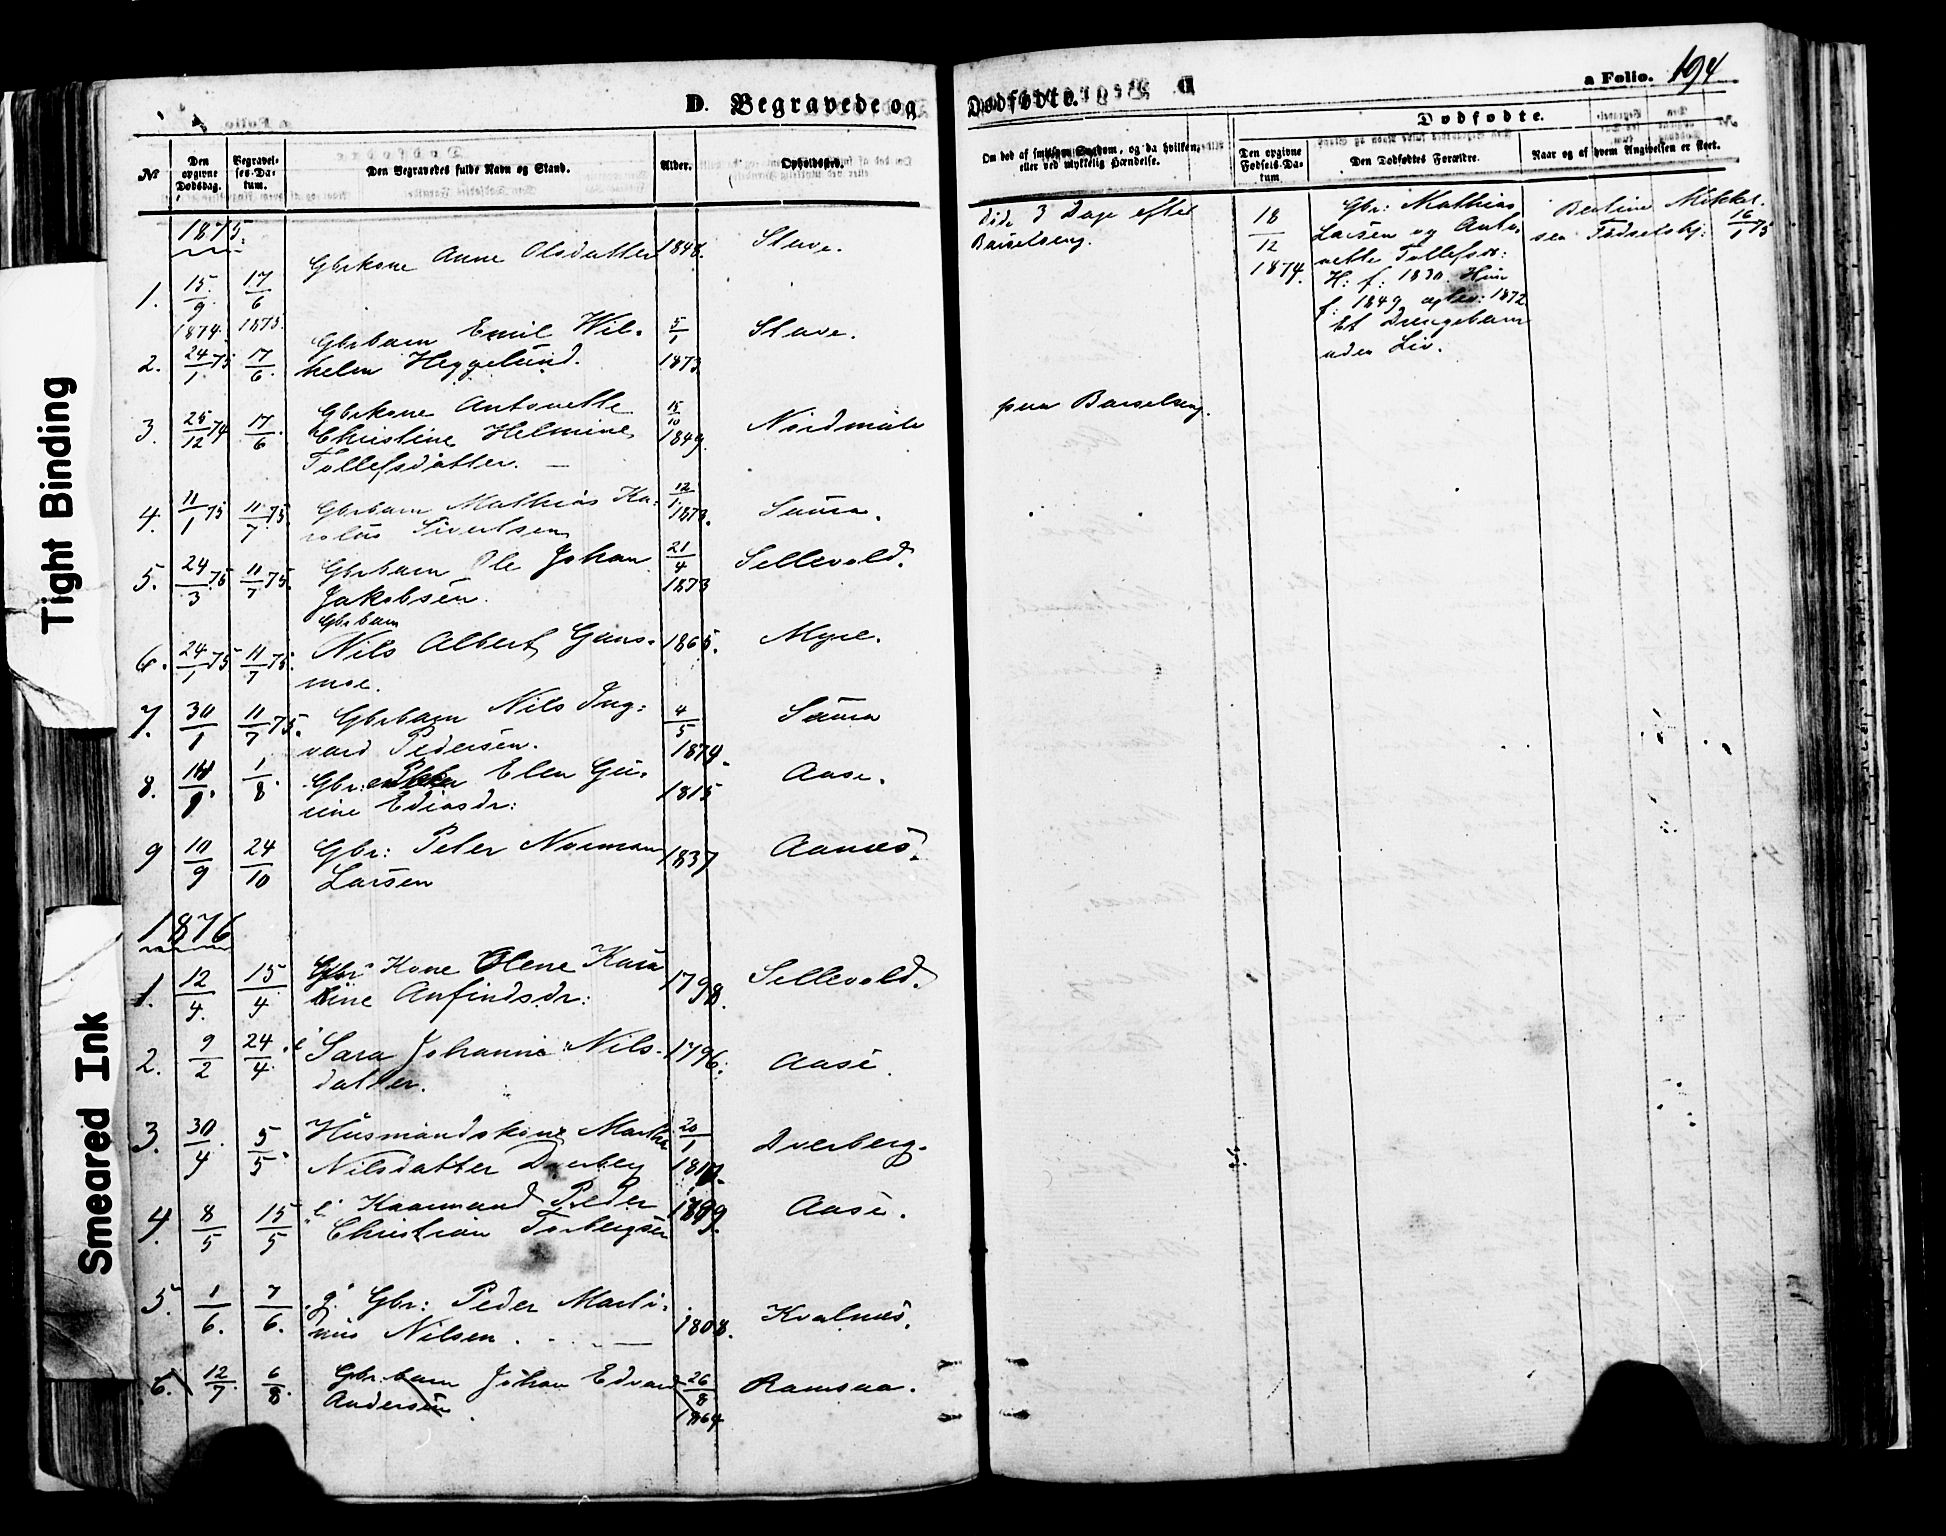 Tight Binding
Smeared Ink
D. Begravede og
Dødfødte.
a Folio. 194
Nr
Den opgivne Dødsdag.
Begravelses-Datum.
Den Begravedes fulde Navn og Stand.
Alder.
Opholdssted.
Om død af smitsom Sygdom, og da hvilken, eller ved ulykkelig Hændelse.
Dødfødte.
Den opgivne Fødsels-Datum
Den Dødfødtes Forældre.
Naar og af hvem Angivelsen er skeet.
1875.
1. 15/9 1874. 17/6 1875. Gbrkone Anne Olsdatter 1848. Stave.
Død 3 Dage efter
Barselseng.
2. 24/1 75 17/6. Gbrbarn Emil Wil-
helm Heggelund. 5/1 1873 Stave.
3. 25/12 74 17/6. Gbrkone Antonette
Christine Helmine
Tollefsdatter. 15/10 1849. Nordmæle
paa Barselseng.
4. 11/1 75 11/7 75. Gbrbarn Mathias Ka-
rolus Sivertsen 12/1 1873. Saura.
5. 24/3 75 11/7 75. Gbrbarn Ole Johan
Jakobsen. 21/4 1873 Sellevold.
Gbrbarn
6. 24/1 75 11/7 75. Nils Albert Gaus-
moe. 1865. Myre.
7. 30/1 11/7 75. Gbrbarn Nils Ing-
vard Pedersen. 4/5 1874. Saura
8. 1/8. Gbr: enke Elen Gu-
rine Ediasdr: 1815 Aase.
9 10/9 24/10 Gbr: Peter Norman
Larsen 1837 Aanæs.
1876
1. 12/4. 15/4. Gbr Kone Olene Karo
line Anfindsdr: 1798. Sellevold.
2. 9/2 24/4. Sara Johanna Nils-
datter. 1796. Aase.
3. 30/4. 5/5. Husmandskone Martha
Nilsdatter Dverberg 20/1 Dverberg.
4. 8/5 15/5 Kaarmand Peder
Christian Torbergsen 1799. Aase.
5. 1/6. 7/6. g. Gbr: Peder Marti-
nus Nilsen. 1808. Kvalnæs.
6. 12/7. 6/8. Gbr.barn Johan Edvard
Andersen 26/8 1864 Ramsaa.
18/12 1874.
Gbr: Mathias
Larsen og Anto-
nette Tollefsdr:
H: f: 1830. Hun
f: 1849 1872
Et Drengebarn
uden Liv.
Berline Mikkel-
sen Fødselshj: 16/1 75